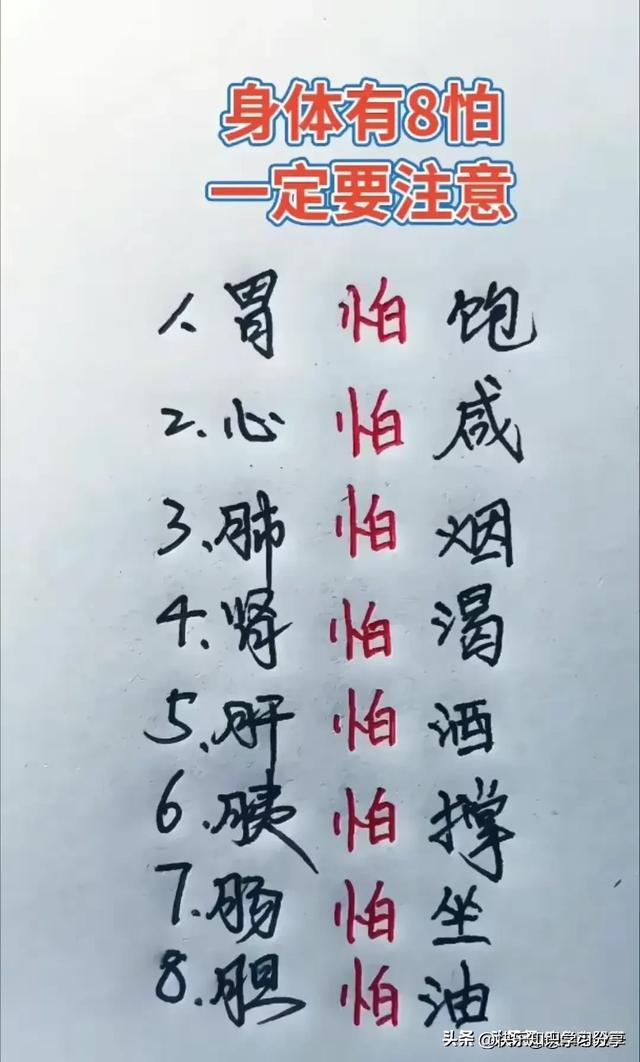 身体有8怕
一定要注意
1、胃 怕 饱
2.心 怕 咸
3、肺 怕 烟
4、肾 怕 渴
5、肝 怕 酒
6.胰 怕 撑
7.肠 怕 坐
8.胆 怕 油
头条 @快乐知识学习分享